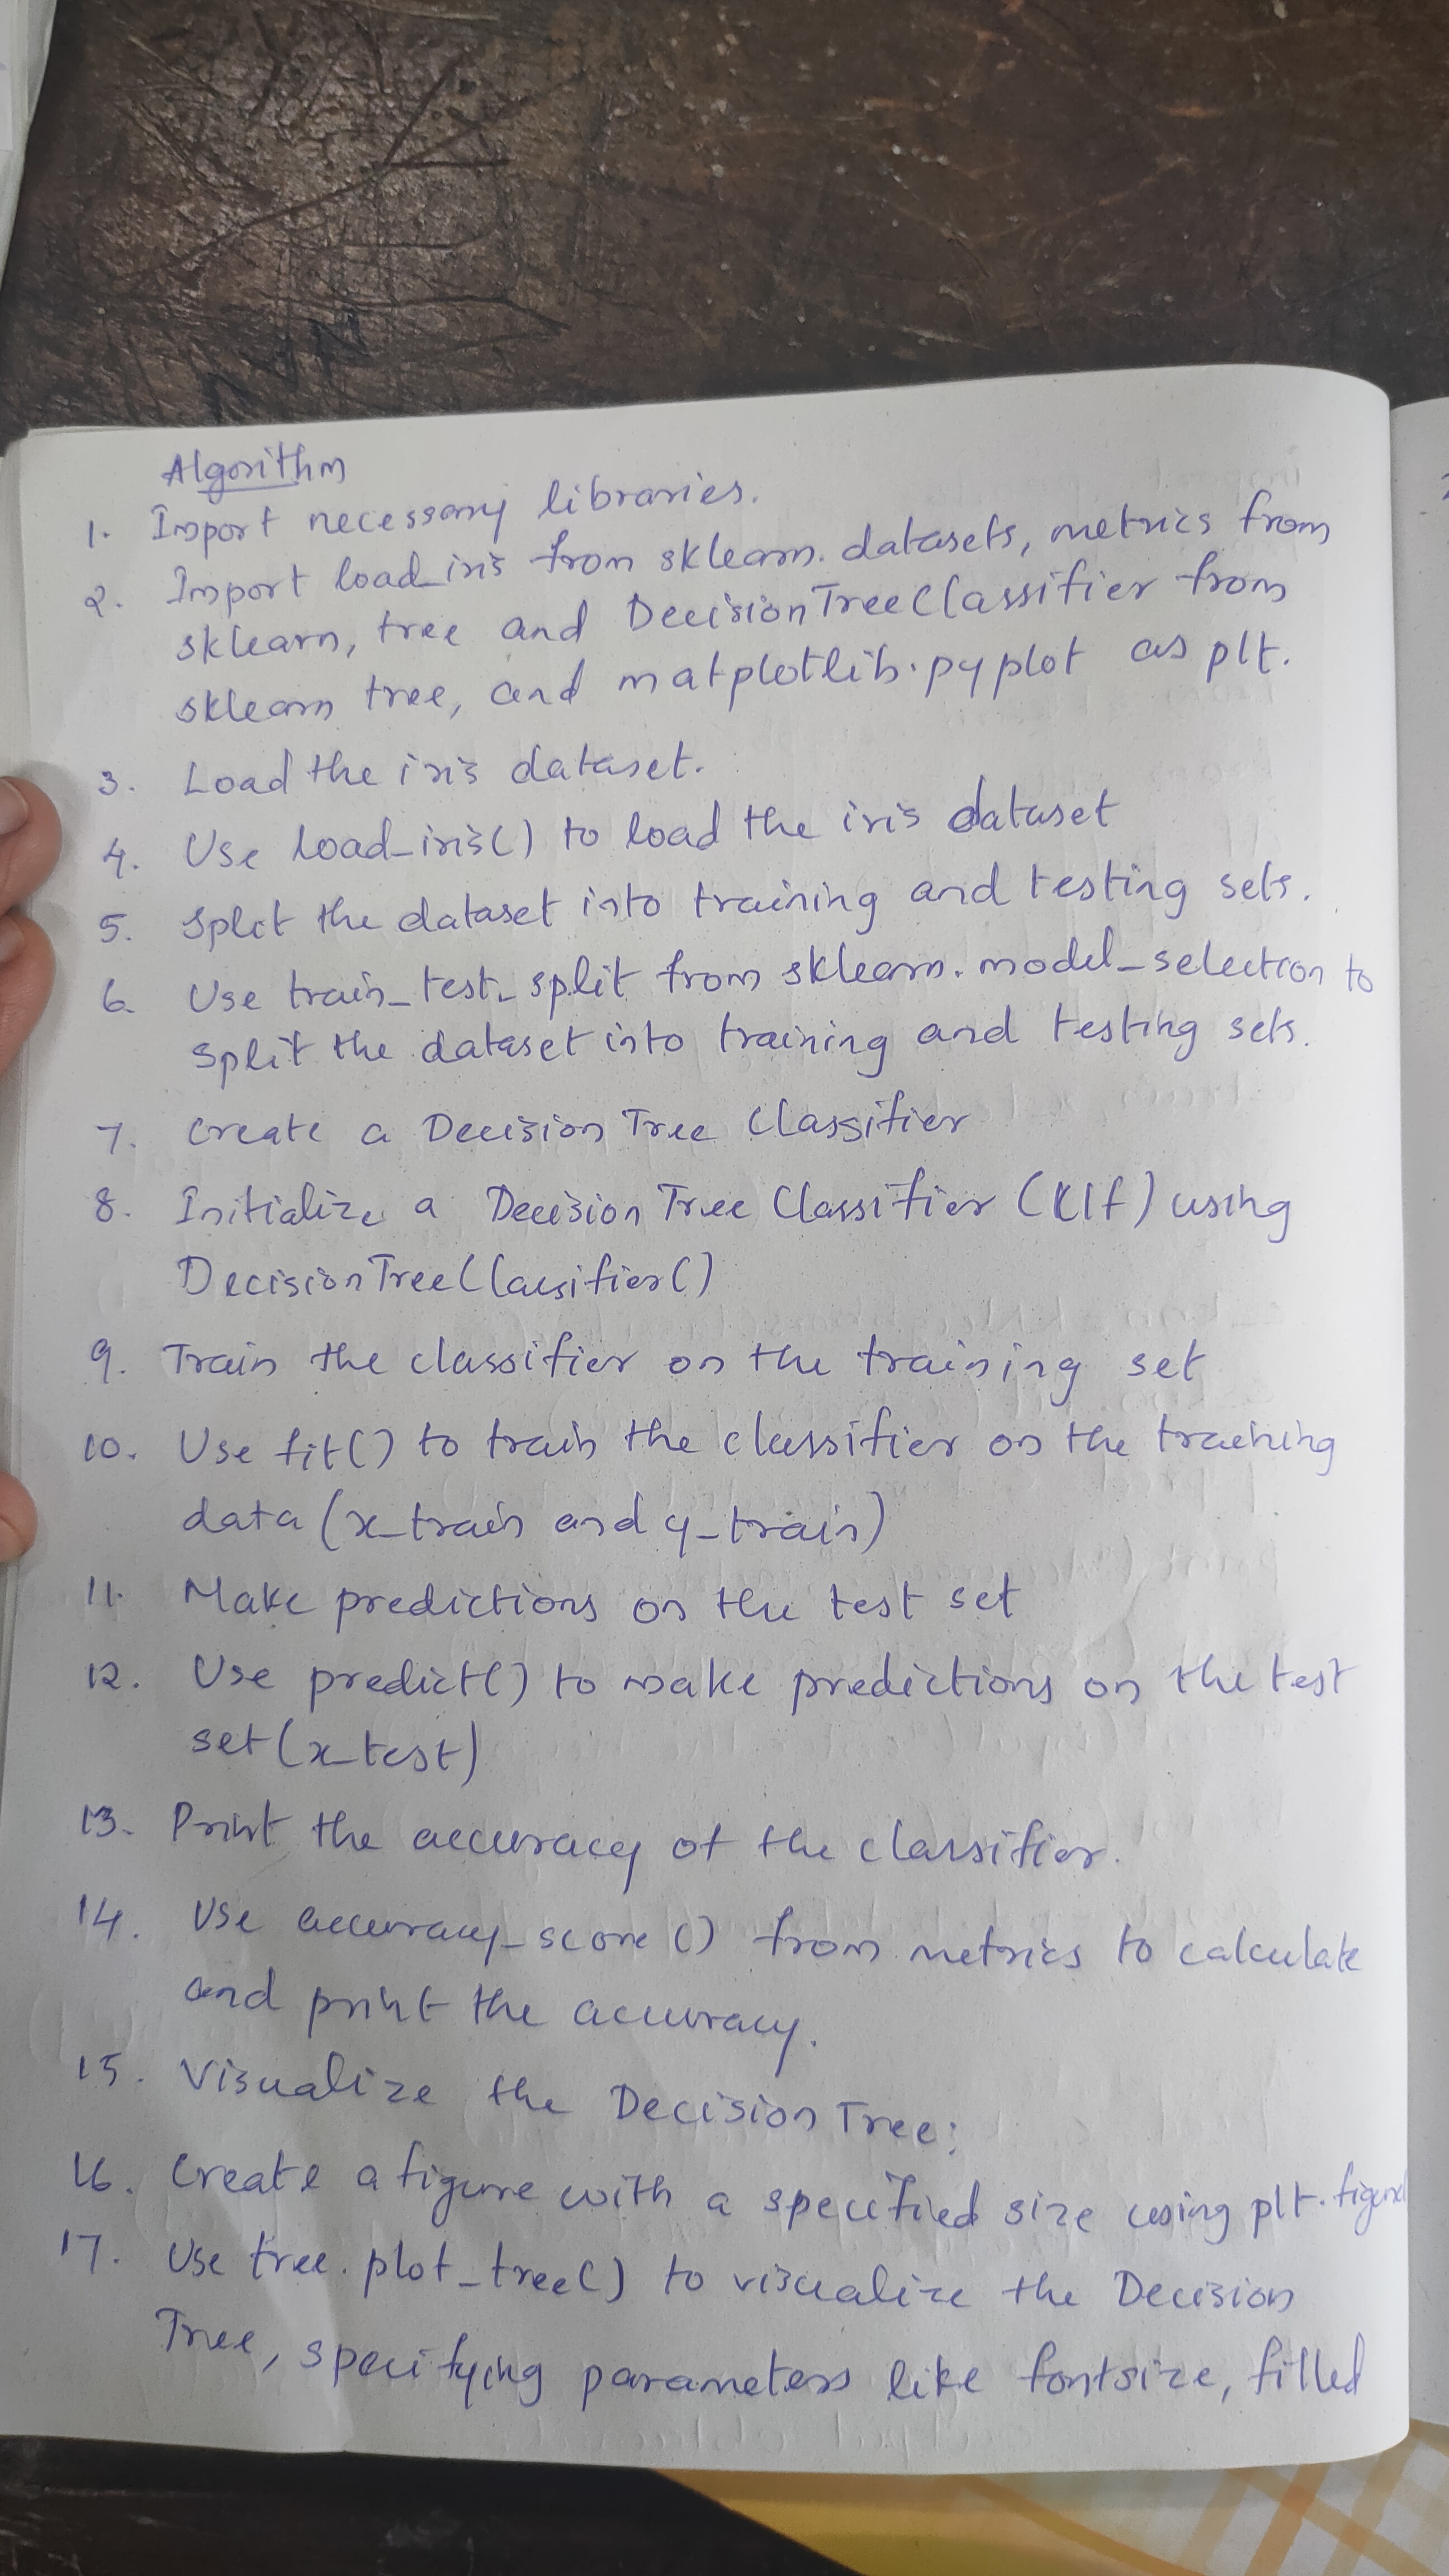 Algorithm
1. Import necessary libraries.
2. Import load_iris from sklearn.datasets, metrics from
sklearn, tree and DecisionTreeClassifier from
sklearn tree, and matplotlib.pyplot as plt.
3. Load the iris dataset.
4. Use load_iris() to load the iris dataset
5. Split the dataset into training and testing sets.
6. Use train_test_split from sklearn.model_selection to
split the dataset into training and testing sets.
7. Create a Decision Tree Classifier
8. Initialize a Decision Tree Classifier (clf) using
DecisionTreeClassifier()
9. Train the classifier on the training set
10. Use fit() to train the classifier on the training
data (x_train and y_train)
11. Make predictions on the test set
12. Use predict() to make predictions on the test
set (x_test)
13. Print the accuracy of the classifier.
14. Use accuracy_score() from metrics to calculate
and print the accuracy.
15. Visualize the Decision Tree:
16. Create a figure with a specified size using plt.figure
17. Use tree.plot_tree() to visualize the Decision
Tree, specifying parameters like fontsize, filled